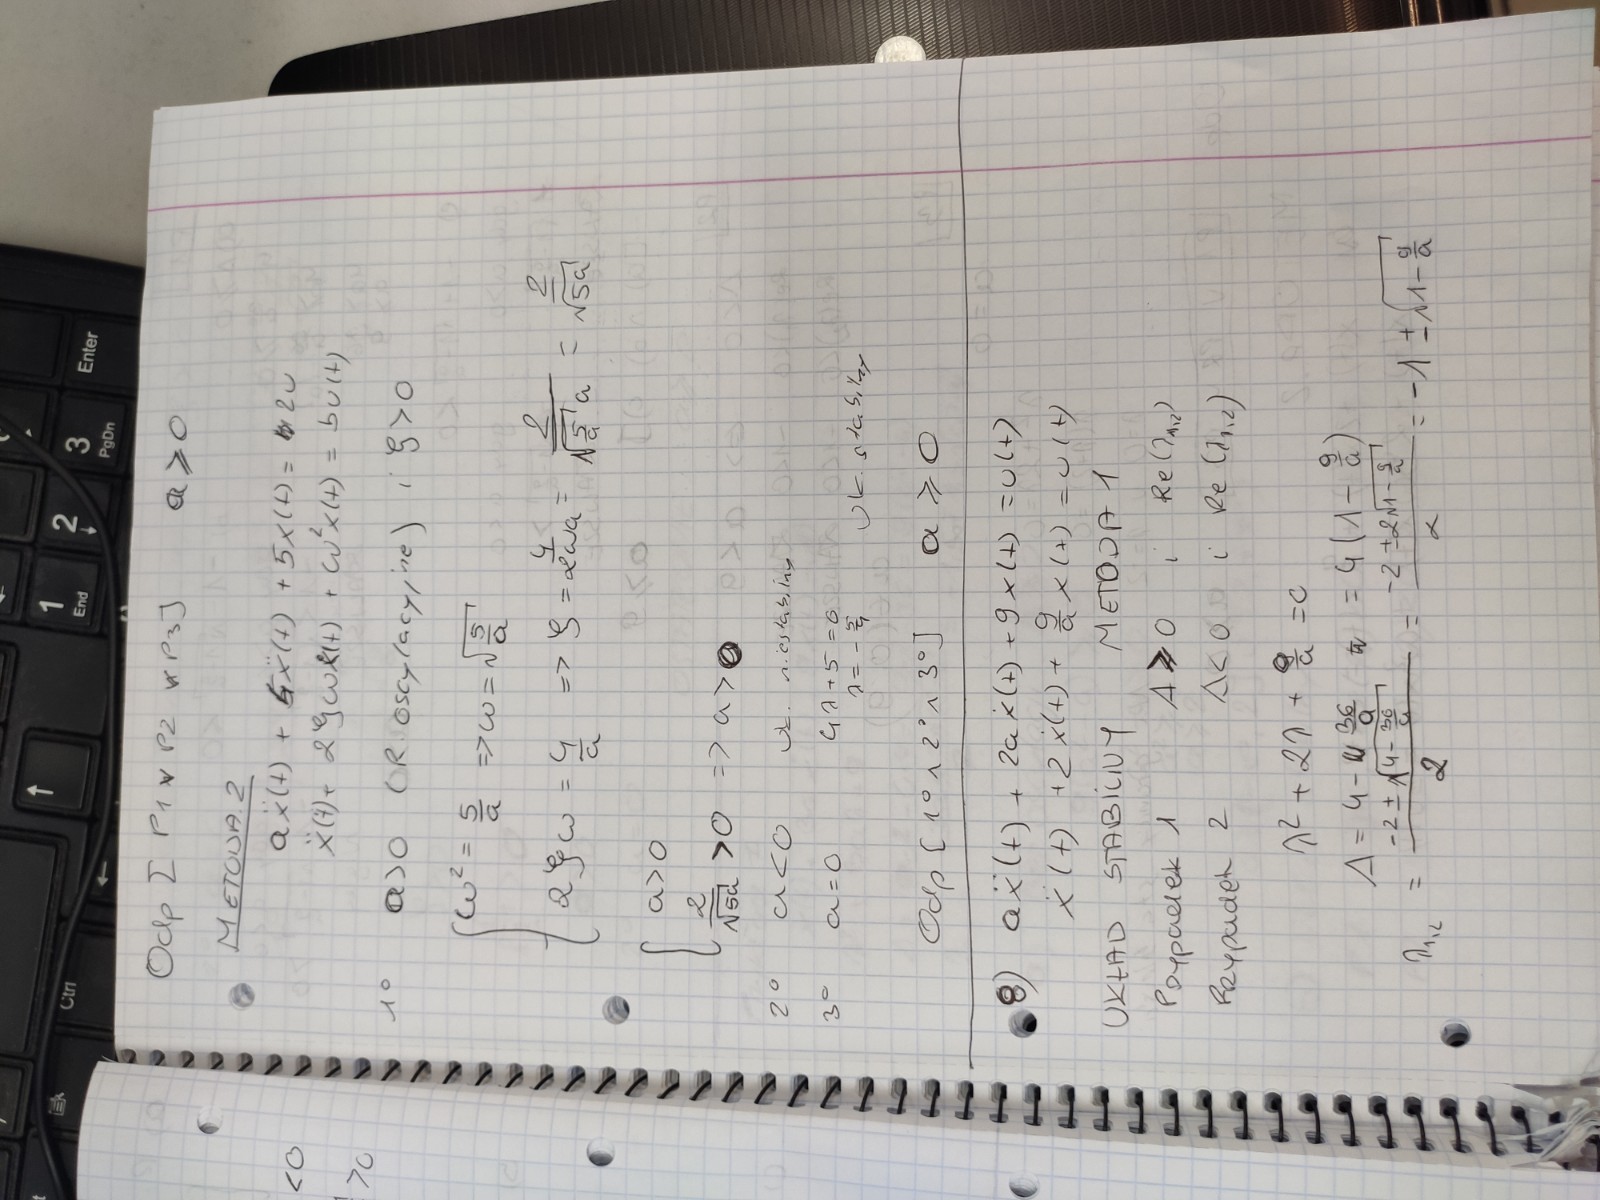 Odp [ P1 ∨ P2 ∨ P3] a ⩾ 0
METODA.2
aẍ(t) + 4ẋ(t) + 5x(t) = 2u
ẍ(t) + 2ξωẋ(t) + ω²x(t) = bu(t)
1° a>0 (R. oscylacyjne) i ξ>0
{ω² = 5/a => ω = √(5/a)
2ξω = 4/a => ξ = 4/2ωa = 2/(√(5/a) a) = 2/√5a
{ a>0
2/√5a >0 => a>0
2° a<0 uk. niestabilny
3° a=0 4λ+5=0 uk. stabilny
λ = -5/4
Odp [ 1° ∧ 2° ∧ 3°] a ⩾ 0
8) aẍ(t) + 2aẋ(t) + 9x(t) = u(t)
ẍ(t) + 2ẋ(t) + 9/a x(t) = u(t)
UKŁAD STABILNY METODA 1
Przypadek 1 Δ ⩾ 0 i Re(λ1,2)
Przypadek 2 Δ<0 i Re(λ1,2)
λ² + 2λ + 9/a = 0
Δ = 4 - 36/a = 4(1 - 9/a)
λ1,2 = (-2 ± √(4 - 36/a))/2 = (-2 ± 2√(1 - 9/a))/2 = -1 ± √(1 - 9/a)
<0
>0
Enter
3
PgDn
2
↓
1
End
↑
Ctrl
←